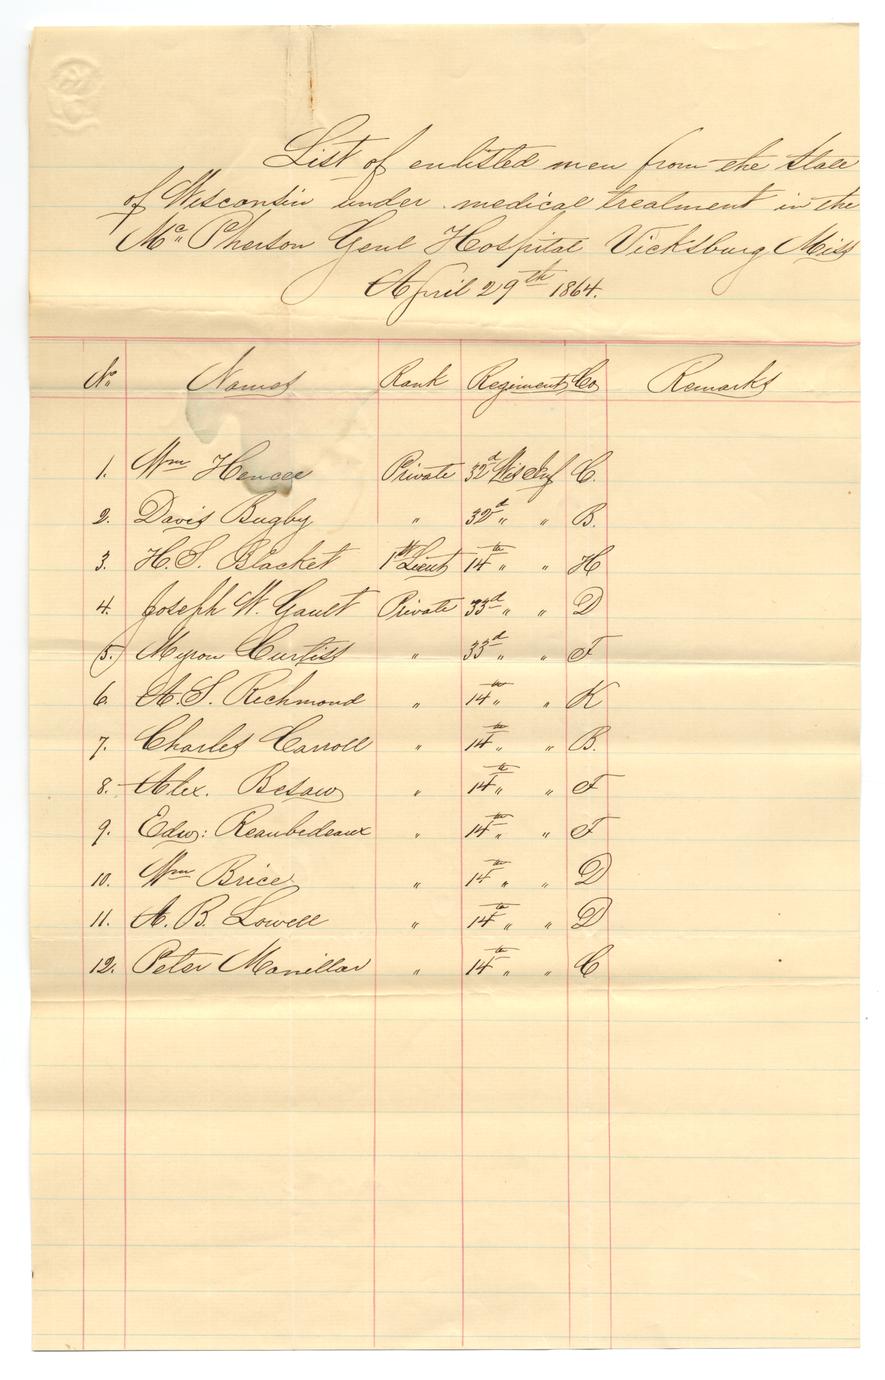 List of enlisted men from the State
of Wisconsin under medical treatment in the
Mc Pherson Genl Hospital Vicksburg Miss
April 29th 1864.
No Names Rank Regiment Co Remarks
1. Wm Hencee Private 32d Wis Inf C.
2. Davis Bugby " 32d " " B.
3. H. S. Blacket 1st Lieut 14th " " H
4. Joseph W. Gault Private 33d " " D
5. Myron Curtiss " 33d " " F
6. A. S. Richmond " 14th " " K
7. Charles Carroll " 14th " " B.
8. Alex. Besaw " 14th " " F
9. Edw: Reaubedeaux " 14th " " F
10. Wm Brice " 14th " " D
11. A. B. Lowell " 14th " " D
12. Peter Manillar " 14th " " C